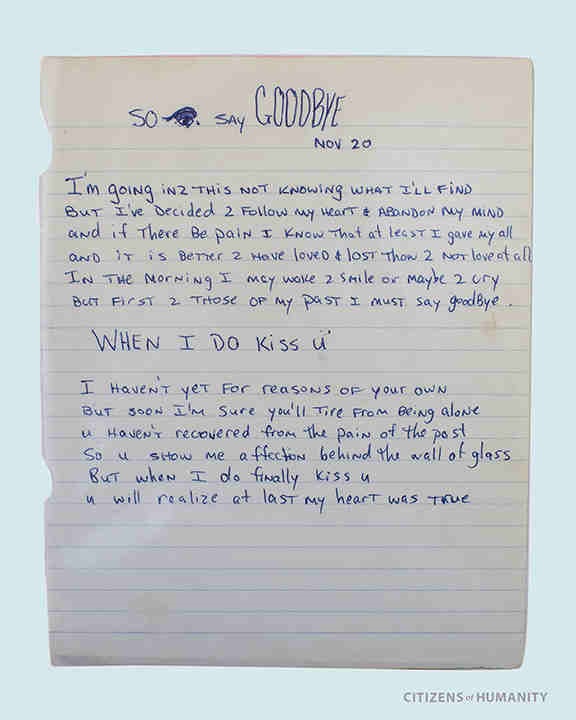 SO 👁 SAY GOODBYE
NOV 20
I'm going in2 THIS NOT KNOWING WHAT I'LL FIND
BUT I'VE Decided 2 Follow my Heart & ABANDON MY MIND
and if There Be pain I know That at least I gave my all
and it is Better 2 Have loved & lost Than 2 Not love at all
IN THE MORNING I may wake 2 Smile or maybe 2 cry
But First 2 Those of my past I must say goodbye.
WHEN I DO Kiss u
I Haven't yet For reasons of your own
But soon I'm Sure you'll Tire From Being alone
u Haven't recovered from the pain of the past
So u show me affection behind the wall of glass
But when I do finally Kiss u
u will realize at last my heart was TRUE
CITIZENS of HUMANITY